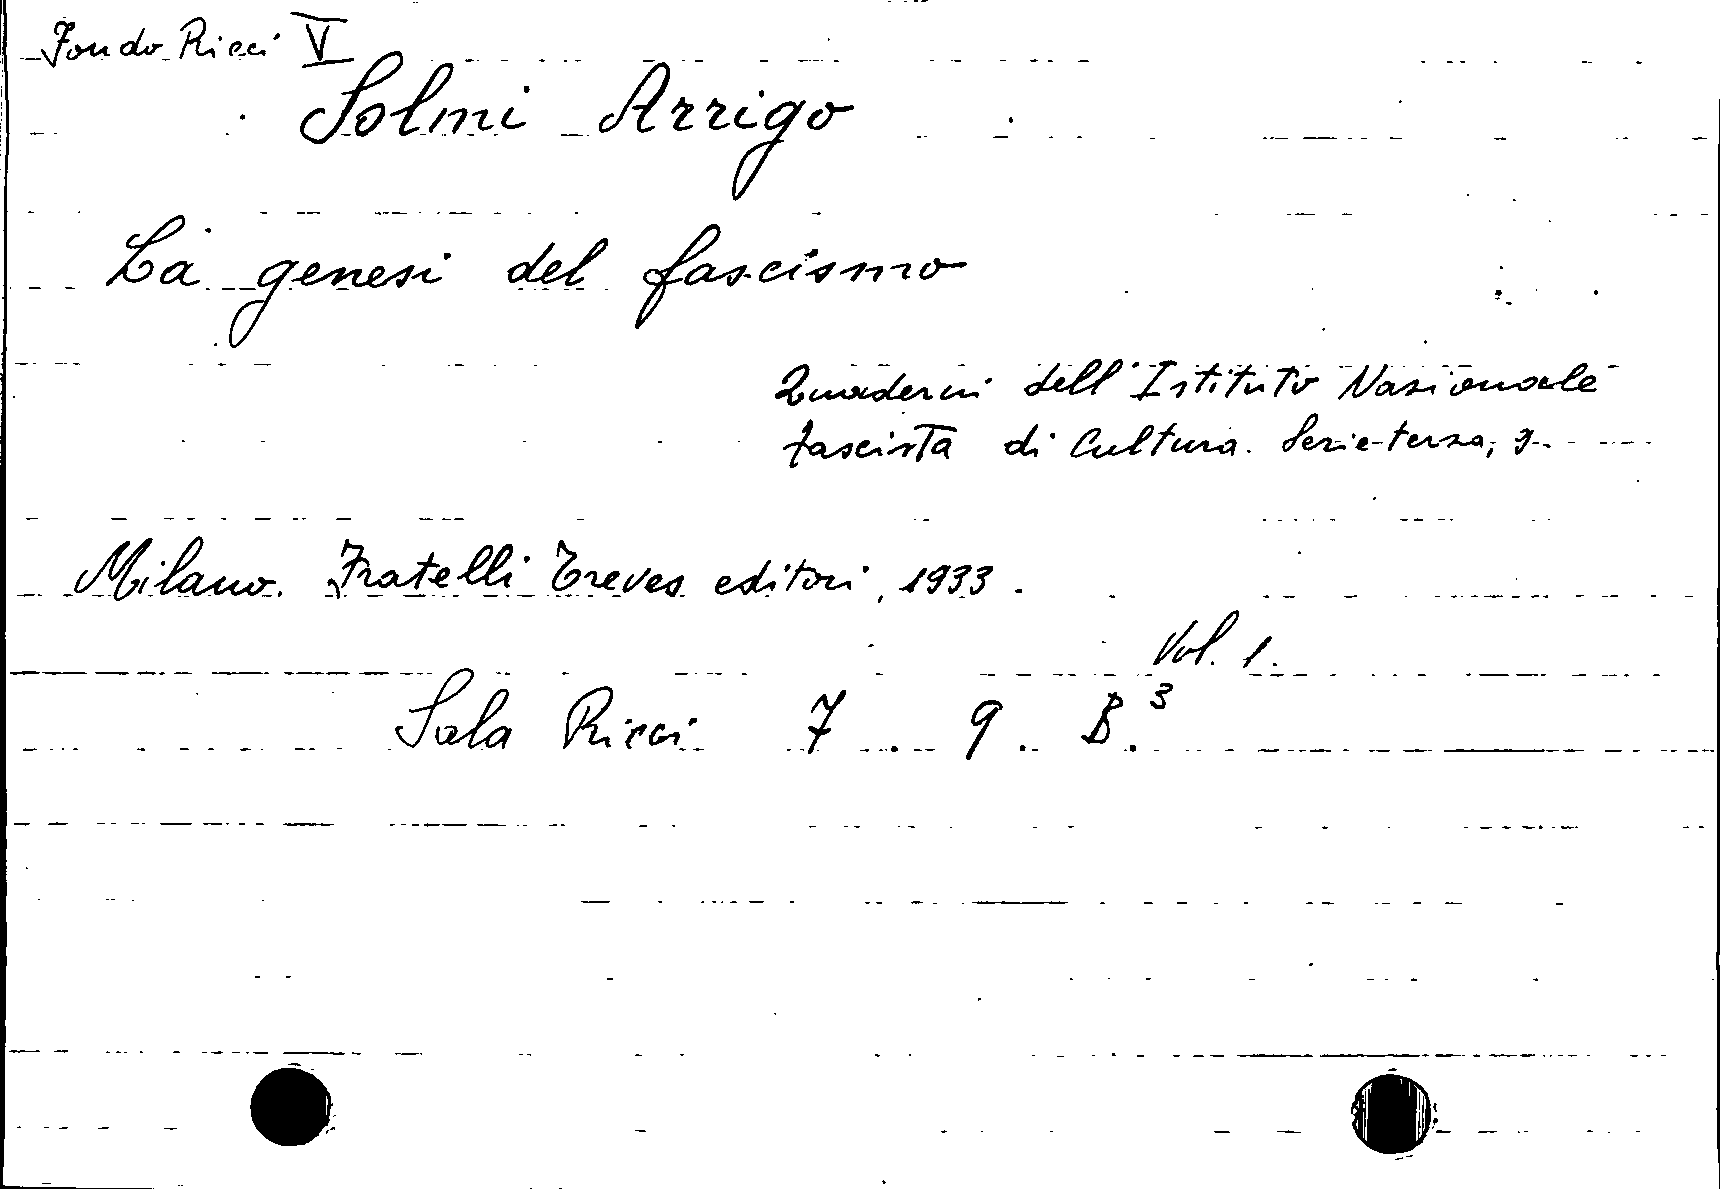 Fondo Ricci V
Solmi Arrigo
La genesi del fascismo
Quaderni dell'Istituto Nazionale
fascista di Cultura. Serie terza, 9.
Milano. Fratelli Treves editori, 1933.
Vol. 1.
Sala Ricci 7. 9. B.³